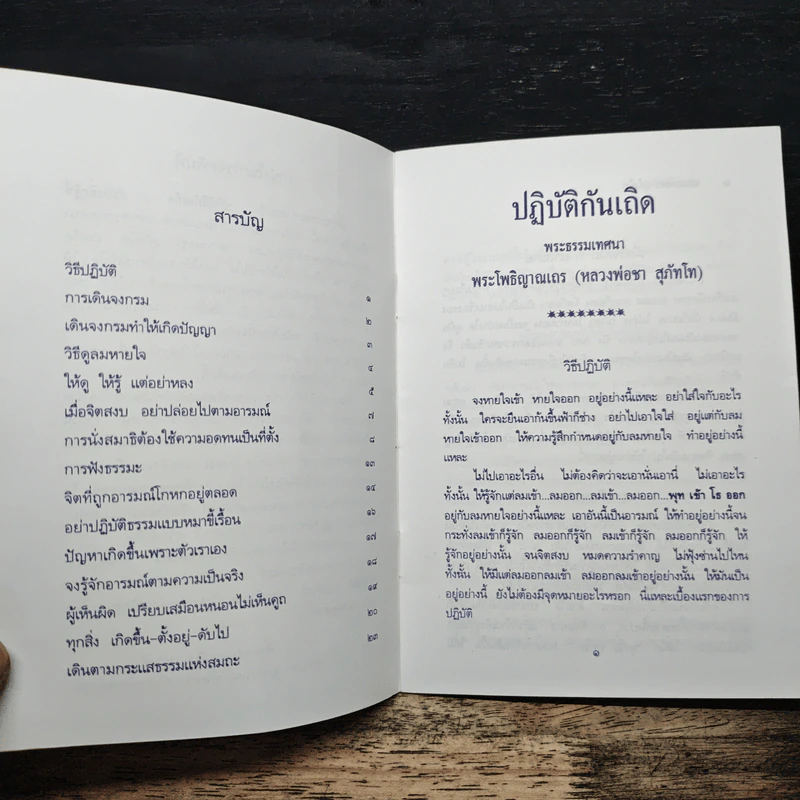 สารบัญ
วิธีปฏิบัติ ๑
การเดินจงกรม ๒
เดินจงกรมทำให้เกิดปัญญา ๓
วิธีดูลมหายใจ ๔
ให้ดู ให้รู้ แต่อย่าหลง ๕
เมื่อจิตสงบ อย่าปล่อยไปตามอารมณ์ ๗
การนั่งสมาธิต้องใช้ความอดทนเป็นที่ตั้ง ๘
การฟังธรรมะ ๑๓
จิตที่ถูกอารมณ์โกหกอยู่ตลอด ๑๔
อย่าปฏิบัติธรรมแบบหมาขี้เรื้อน ๑๖
ปัญหาเกิดขึ้นเพราะตัวเราเอง ๑๗
จงรู้จักอารมณ์ตามความเป็นจริง ๑๘
ผู้เห็นผิด เปรียบเสมือนหนอนไม่เห็นคูถ ๑๙
ทุกสิ่ง เกิดขึ้น-ตั้งอยู่-ดับไป ๒๐
เดินตามกระแสธรรมแห่งสมถะ ๒๓
ปฏิบัติกันเถิด
พระธรรมเทศนา
พระโพธิญาณเถร (หลวงพ่อชา สุภัทโท)
********
วิธีปฏิบัติ
จงหายใจเข้า หายใจออก อยู่อย่างนี้แหละ อย่าใส่ใจกับอะไร
ทั้งนั้น ใครจะยืนเอากันขึ้นฟ้าก็ช่าง อย่าไปเอาใจใส่ อยู่แต่กับลม
หายใจเข้าออก ให้ความรู้สึกกำหนดอยู่กับลมหายใจ ทำอยู่อย่างนี้
แหละ
ไม่ไปเอาอะไรอื่น ไม่ต้องคิดว่าจะเอานั่นเอานี่ ไม่เอาอะไร
ทั้งนั้น ให้รู้จักแต่ลมเข้า...ลมออก...ลมเข้า...ลมออก...พุท เข้า โธ ออก
อยู่กับลมหายใจอย่างนี้แหละ เอาอันนี้เป็นอารมณ์ ให้ทำอยู่อย่างนี้จน
กระทั่งลมเข้าก็รู้จัก ลมออกก็รู้จัก ลมเข้าก็รู้จัก ลมออกก็รู้จัก ให้
รู้จักอยู่อย่างนั้น จนจิตสงบ หมดความรำคาญ ไม่ฟุ้งซ่านไปไหน
ทั้งนั้น ให้มีแต่ลมออกลมเข้า ลมออกลมเข้าอยู่อย่างนั้น ให้มันเป็น
อยู่อย่างนี้ ยังไม่ต้องมีจุดหมายอะไรหรอก นี่แหละเบื้องแรกของการ
ปฏิบัติ
๑